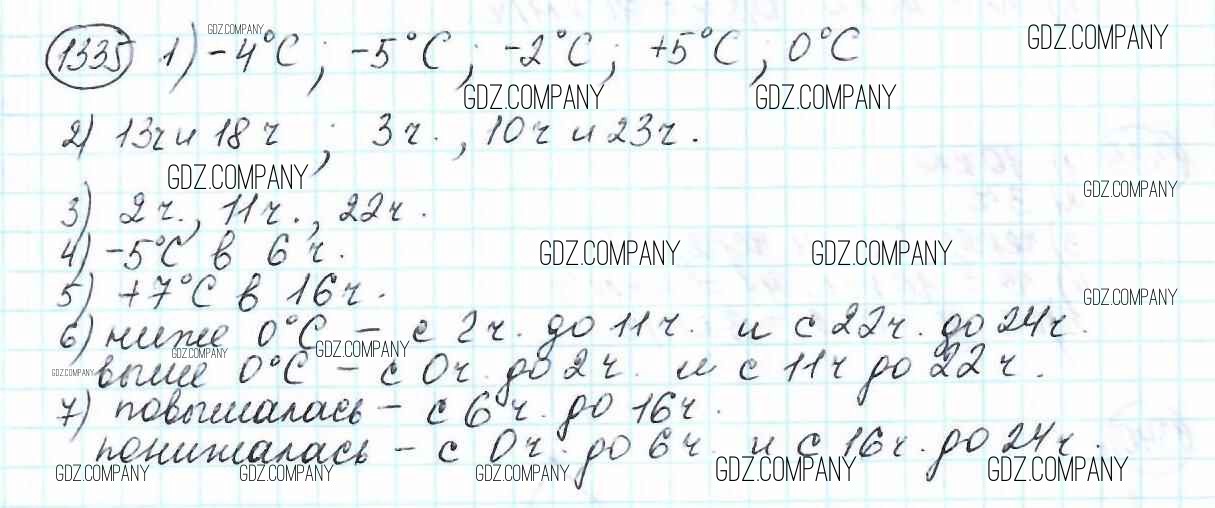 1335 1) -4°C; -5°C; -2°C; +5°C; 0°C
GDZ.COMPANY GDZ.COMPANY
GDZ.COMPANY GDZ.COMPANY
2) 13ч и 18 ч; 3 ч., 10ч и 23ч.
GDZ.COMPANY
GDZ.COMPANY
3) 2 ч., 11ч., 22ч.
4) -5°C в 6 ч.
GDZ.COMPANY GDZ.COMPANY
5) +7°C в 16ч.
GDZ.COMPANY
6) ниже 0°C - с 2ч. до 11ч. и с 22ч. до 24ч.
GDZ.COMPANY GDZ.COMPANY
выше 0°C - с 0ч. до 2ч. и с 11ч до 22ч.
GDZ.COMPANY
7) повышалась - с 6 ч. до 16ч.
понижалась - с 0ч. до 6ч и с 16ч. до 24ч.
GDZ.COMPANY GDZ.COMPANY GDZ.COMPANY GDZ.COMPANY GDZ.COMPANY